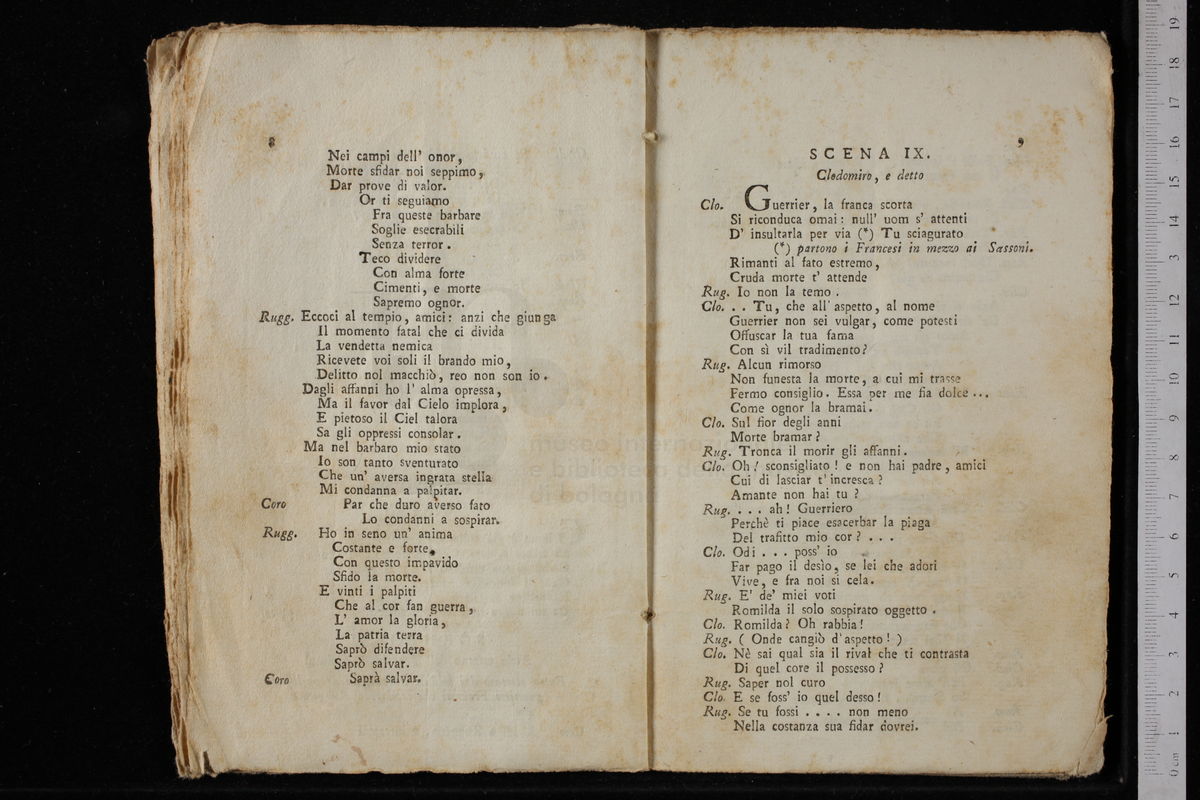 8
Nei campi dell' onor,
Morte sfidar noi seppimo,
Dar prove di valor.
Or ti seguiamo
Fra queste barbare
Soglie esecrabili
Senza terror.
Teco dividere
Con alma forte
Cimenti, e morte
Sapremo ognor.
Rugg. Eccoci al tempio, amici: anzi che giunga
Il momento fatal che ci divida
La vendetta nemica
Ricevete voi soli il brando mio,
Delitto nol macchiò, reo non son io.
Dagli affanni ho l' alma opressa,
Ma il favor dal Cielo implora,
E pietoso il Ciel talora
Sa gli oppressi consolar.
Ma nel barbaro mio stato
Io son tanto sventurato
Che un' aversa ingrata stella
Mi condanna a palpitar.
Coro Par che duro averso fato
Lo condanni a sospirar.
Rugg. Ho in seno un' anima
Costante e forte,
Con questo impavido
Sfido la morte.
E vinti i palpiti
Che al cor fan guerra,
L' amor la gloria,
La patria terra
Saprò difendere
Saprò salvar.
Coro Saprà salvar.
9
SCENA IX.
Clodomiro, e detto
Clo. Guerrier, la franca scorta
Si riconduca omai: null' uom s' attenti
D' insultarla per via (*) Tu sciagurato
(*) partono i Francesi in mezzo ai Sassoni.
Rimanti al fato estremo,
Cruda morte t' attende
Rug. Io non la temo.
Clo. . . Tu, che all' aspetto, al nome
Guerrier non sei vulgar, come potesti
Offuscar la tua fama
Con sì vil tradimento?
Rug. Alcun rimorso
Non funesta la morte, a cui mi trasse
Fermo consiglio. Essa per me fia dolce ...
Come ognor la bramai.
Clo. Sul fior degli anni
Morte bramar?
Rug. Tronca il morir gli affanni.
Clo. Oh! sconsigliato! e non hai padre, amici
Cui di lasciar t' incresca?
Amante non hai tu?
Rug. . . . ah! Guerriero
Perchè ti piace esacerbar la piaga
Del trafitto mio cor? . . .
Clo. Odi . . . poss' io
Far pago il desìo, se lei che adori
Vive, e fra noi si cela.
Rug. E' de' miei voti
Romilda il solo sospirato oggetto.
Clo. Romilda? Oh rabbia!
Rug. ( Onde cangiò d' aspetto! )
Clo. Nè sai qual sia il rival che ti contrasta
Di quel core il possesso?
Rug. Saper nol curo
Clo. E se foss' io quel desso!
Rug. Se tu fossi . . . . non meno
Nella costanza sua fidar dovrei.
museo interna
e biblioteca de
di bologna
0 cm 1 2 3 4 5 6 7 8 9 10 11 12 13 14 15 16 17 18 19